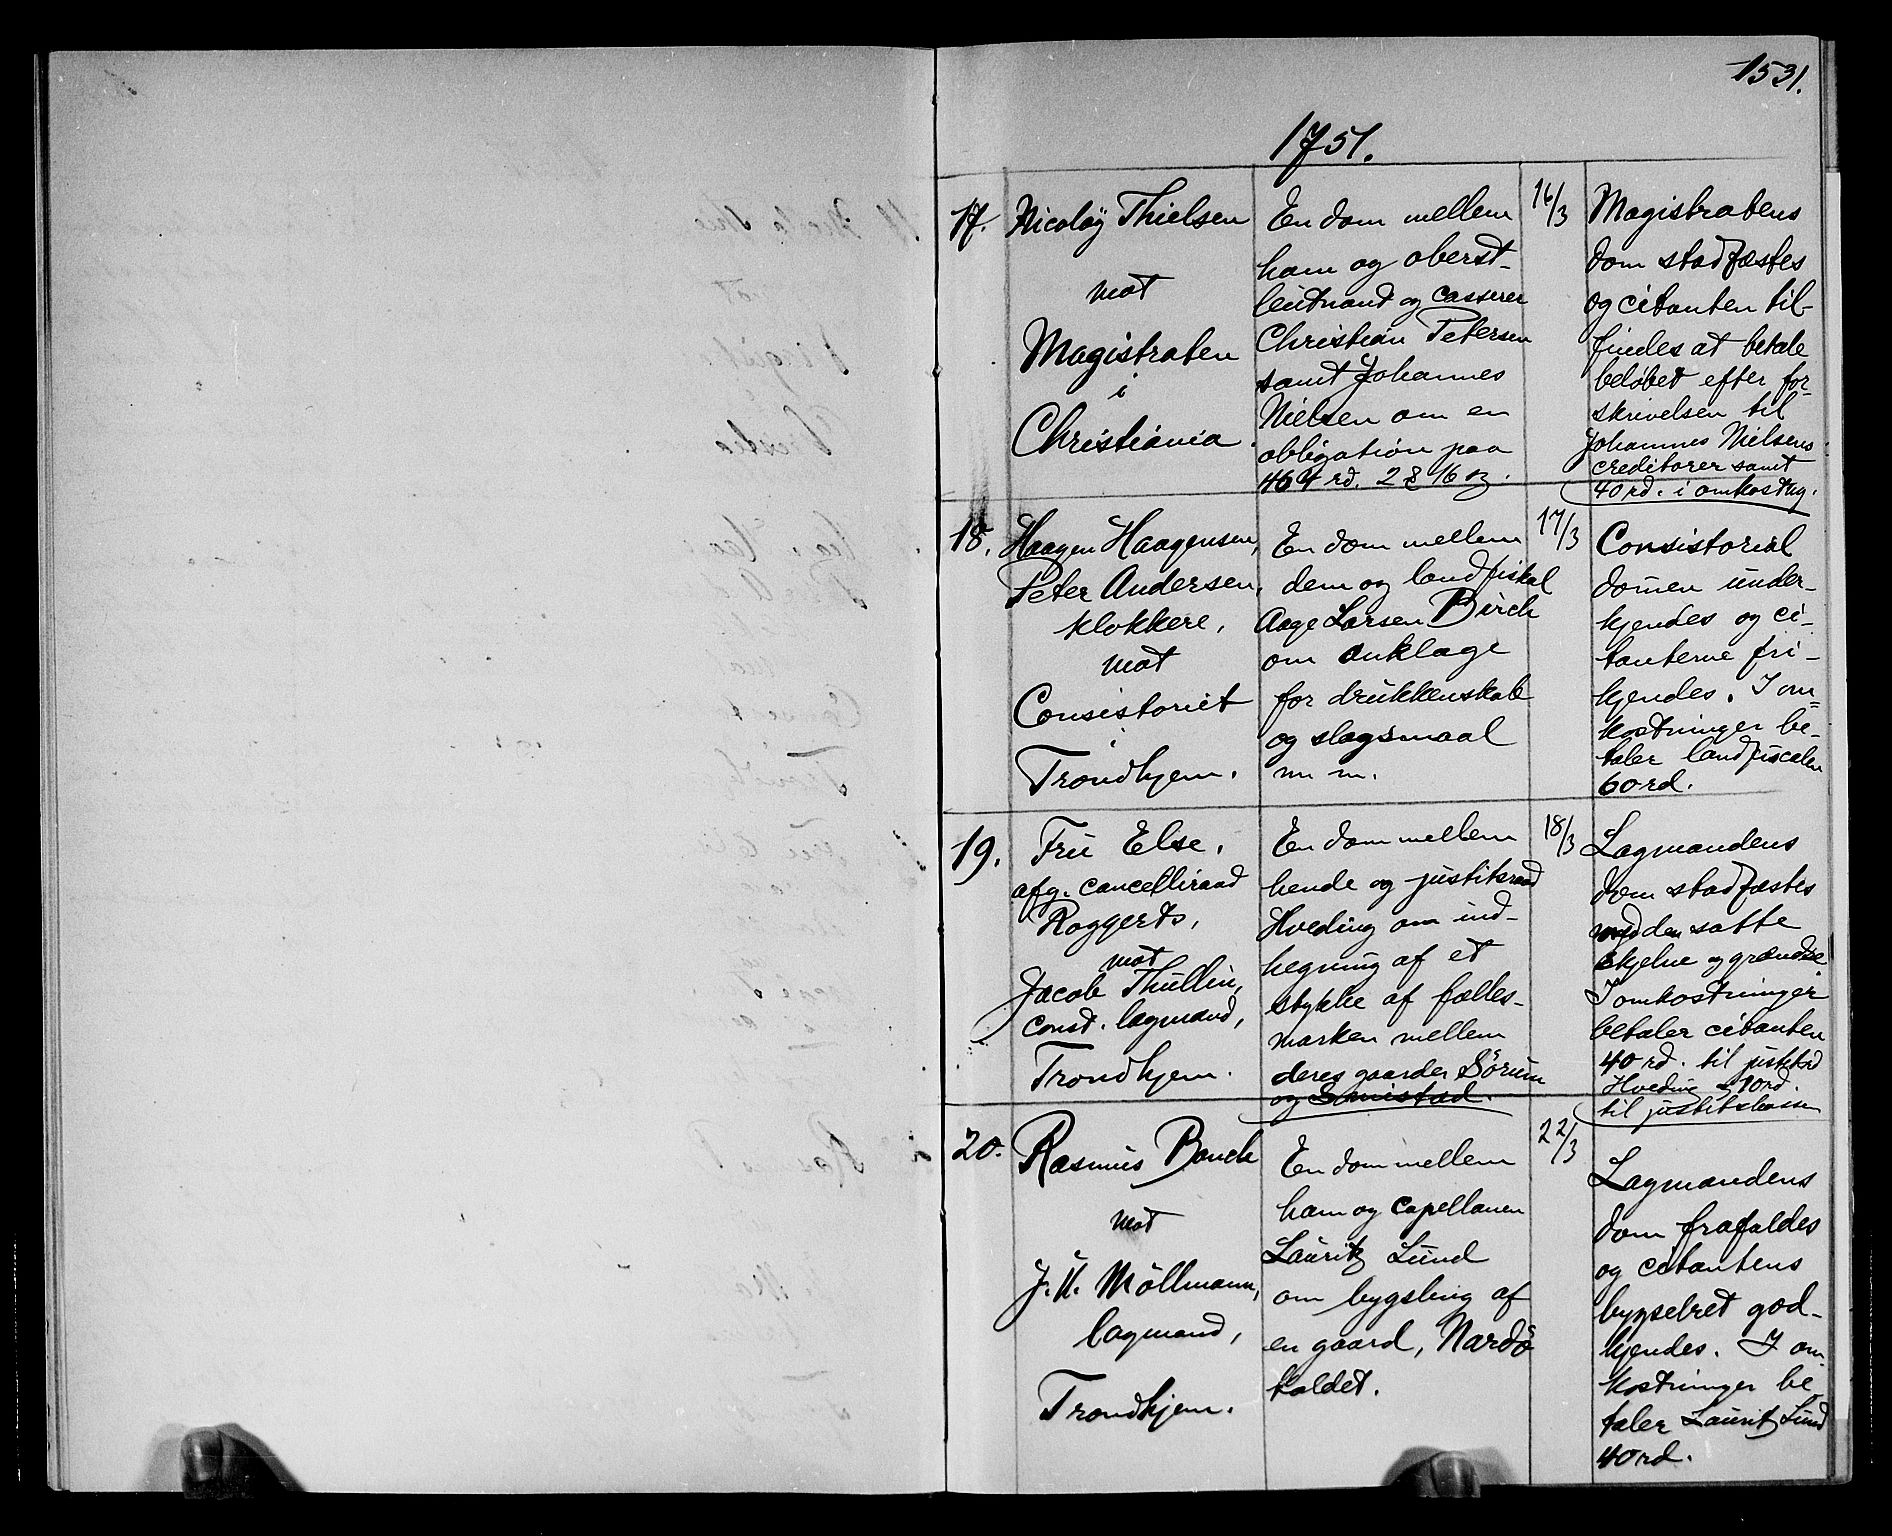 1531.
1751.
17.
Nicoløy Thielsen
mot
Magistraten
i
Christiania.
En dom mellem
ham og oberst-
leutnand og casserer
Christian Petersen
samt Johannes
Nielsen om en
obligation paa
464 rd. 2 16
16/3
Magistratens
dom stadfæstes
og citanten til-
findes at betale
beløbet efter for-
skrivelsen til
Johannes Nielsens
creditorer samt
40 rd. i omkostng.
18.
Haagen Haagensen,
Peter Andersen,
klokkere,
mot
Consistoriet
i
Trondhjem.
En dom mellem
dem og landfiskal
Aage Larsen Birch
om anklage
for drukkenskab
og slagsmaal
m m.
17/3
Consistorial
domen under-
kjendes og ci-
tanterne fri-
kjendes. I om-
kostninger be-
taler landfiscalen
60 rd.
19.
Fru Else,
afg. cancelliraad
Roggerts,
mot
Jacob Thullin,
const. lagmand,
Trondhjem.
En dom mellem
hende og justitsraad
Hveding om ind-
hegning af et
stykke af fælles-
marken mellem
deres gaarder Sörum
og
18/3
Lagmandens
dom stadfæstes
med den satte
skjelne og grændse.
I omkostninger
betaler citanten
40 rd. til justitsrd
Hveding & 10 rd.
til justitskassen
20.
Rasmus Bauch
mot
J. U. Möllmann,
lagmand,
Trondhjem.
En dom mellem
ham og capellanen
Lauritz Lund
om bygsling af
en gaard, Nardö
kaldet.
22/3
Lagmandens
dom frafaldes
og citantens
bygselret god-
kjendes. I om-
kostninger be-
taler Lauritz Lund
40 rd.